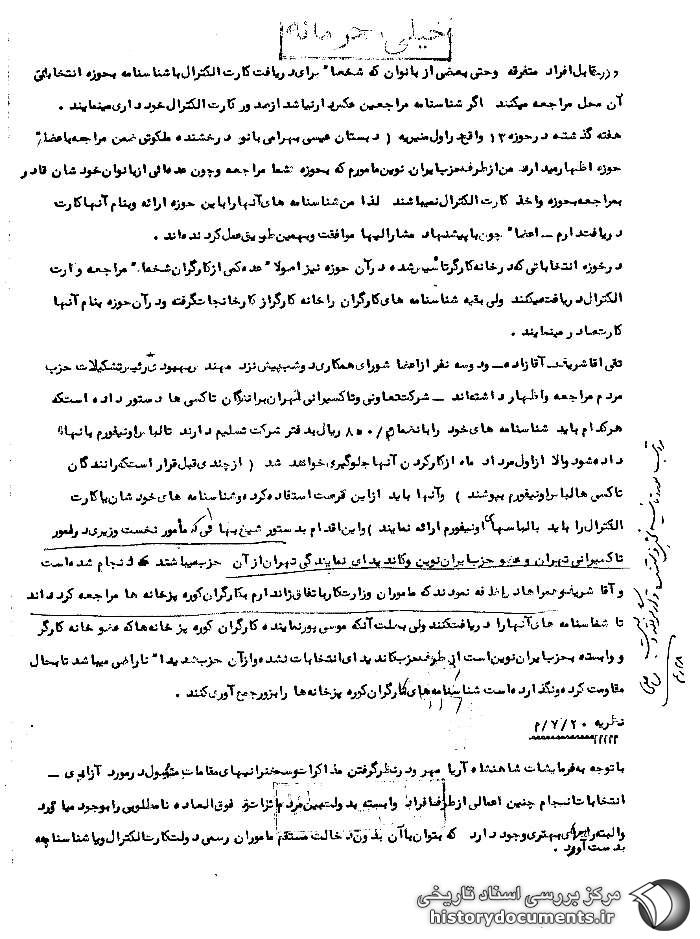 خیلی محرمانه
و در مقابل افراد متفرقه وحتی بعضی از بانوان که شخصا" برای دریافت کارت الکترال با شناسنامه بحوزه انتخاباتی
آن محل مراجعه میکنند اگر شناسنامه مراجعین عکسدار نباشد از صدور کارت الکترال خودداری مینمایند .
هفته گذشته در حوزه ۱۳ واقع در اول منیریه ( دبستان عیسی بهرامی بانو درخشنده طلکوش ضمن مراجعه باعضاء
حوزه اظهار میدارد من از طرف حزب ایران نوین مامورم که بحوزه شما مراجعه وچون عده‌ای از بانوان خودشان قادر
بمراجعه بحوزه واخذ کارت الکترال نمیباشند لذا من شناسنامه های آنها را باین حوزه ارائه وبنام آنها کارت
دریافت دارم ــ اعضا" چون با پیشنهاد مشارالیها موافقت وبهمین طریق عمل کرده‌اند .
در حوزه انتخاباتی که در خانه کارگر تأسیس شده در آن حوزه نیز اصولا" عده کمی از کارگران شخصا" مراجعه وکارت
الکترال دریافت میکنند ولی بقیه شناسنامه های کارگران را خانه کارگر از کارخانجات گرفته ودر آن حوزه بنام آنها
کارت صادر مینمایند .
تقی اقا شریف ــ آقازاده ــ ودو سه نفر از اعضا شورای همکاری دو شب پیش نزد مهندس بهبودی رئیس تشکیلات حزب
مردم مراجعه واظهار داشته‌اند ــ شرکت تعاونی وتاکسیرانی تهران برانندگان تاکسی ها دستور داده است که
هرکدام باید شناسنامه های خود را بانضمام ۸۵۰/ ریال بدفتر شرکت تسلیم دارند تا لباس اونیفورم بانها
داده شود والا از اول مرداد ماه از کار کردن آنها جلوگیری خواهد شد ( از چندی قبل قرار است که رانندگان
تاکسی ها لباس اونیفورم بپوشند ) وآنها باید از این فرصت استفاده کرده وشناسنامه های خودشان با کارت
الکترال را باید با لباسهای اونیفورم ارائه نمایند ) واین اقدام بدستور شیخ بهائی که مأمور نخست وزیری در امور
تاکسیرانی تهران و عضو حزب ایران نوین وکاندیدای نمایندگی تهران از آن حزب میباشند که انجام شده است
و آقا شریف و همراهان اضافه نمودند که ماموران وزارت کار با تفاق ژاندارم بکارگران کوره پزخانه ها مراجعه کرده‌اند
تا شناسنامه های آنها را دریافت کنند ولی بعلت آنکه موسی پور نماینده کارگران کوره پزخانه ها که عضو خانه کارگر
و وابسته بحزب ایران نوین است از طرف حزب کاندیدای انتخابات نشده واز آن حزب شدیدا" ناراضی میباشد تابحال
مقاومت کرده ونگذارده است شناسنامه های کارگران کوره پزخانه ها را بزور جمع آوری کنند .
نظریه ۲۰/۷/م
باتوجه به فرمایشات شاهنشاه آریا مهر ودر نظر گرفتن مذاکرات وسخنرانیهای مقامات مسئول در مورد آزادی ــ
انتخابات انجام چنین اعمالی از طرف افراد وابسته بدولت بین مردم اثرات فوق العاده نامطلوبی را بوجود میآورد
والبته راههای بهتری وجود دارد که بتوان با آن بدون دخالت مستقیم ماموران رسمی دولت کارت الکترال ویا شناسنامه
بدست آورد .
مرکز بررسی اسناد تاریخی
historydocuments.ir